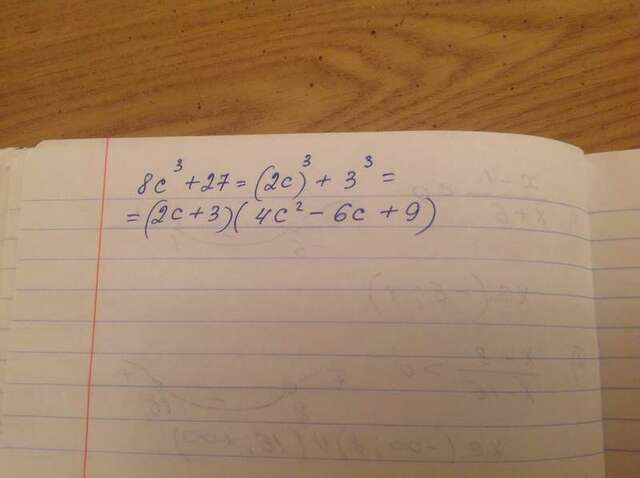 8c³ + 27 = (2c)³ + 3³ =
= (2c + 3)(4c² - 6c + 9)